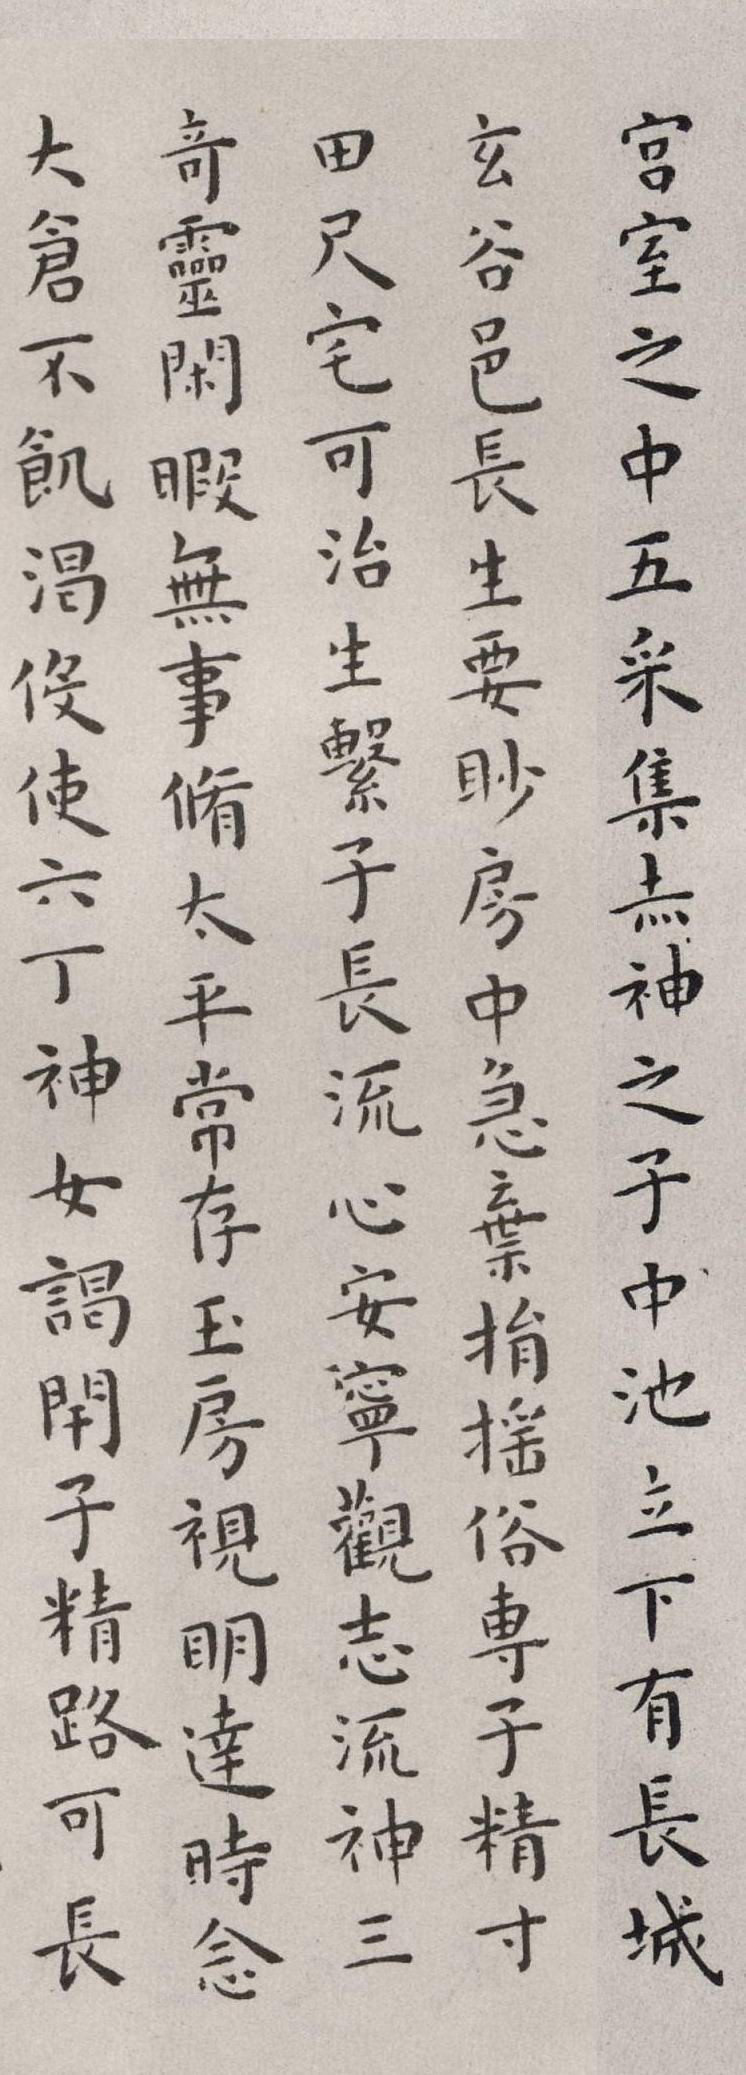 宮室之中五采集赤神之子中池立下有長城
玄谷邑長生要眇房中急棄捐搖俗專子精寸
田尺宅可治生繫子長流心安寧觀志流神三
奇靈閑暇無事脩太平常存玉房視明達時念
大倉不飢渴役使六丁神女謁閇子精路可長